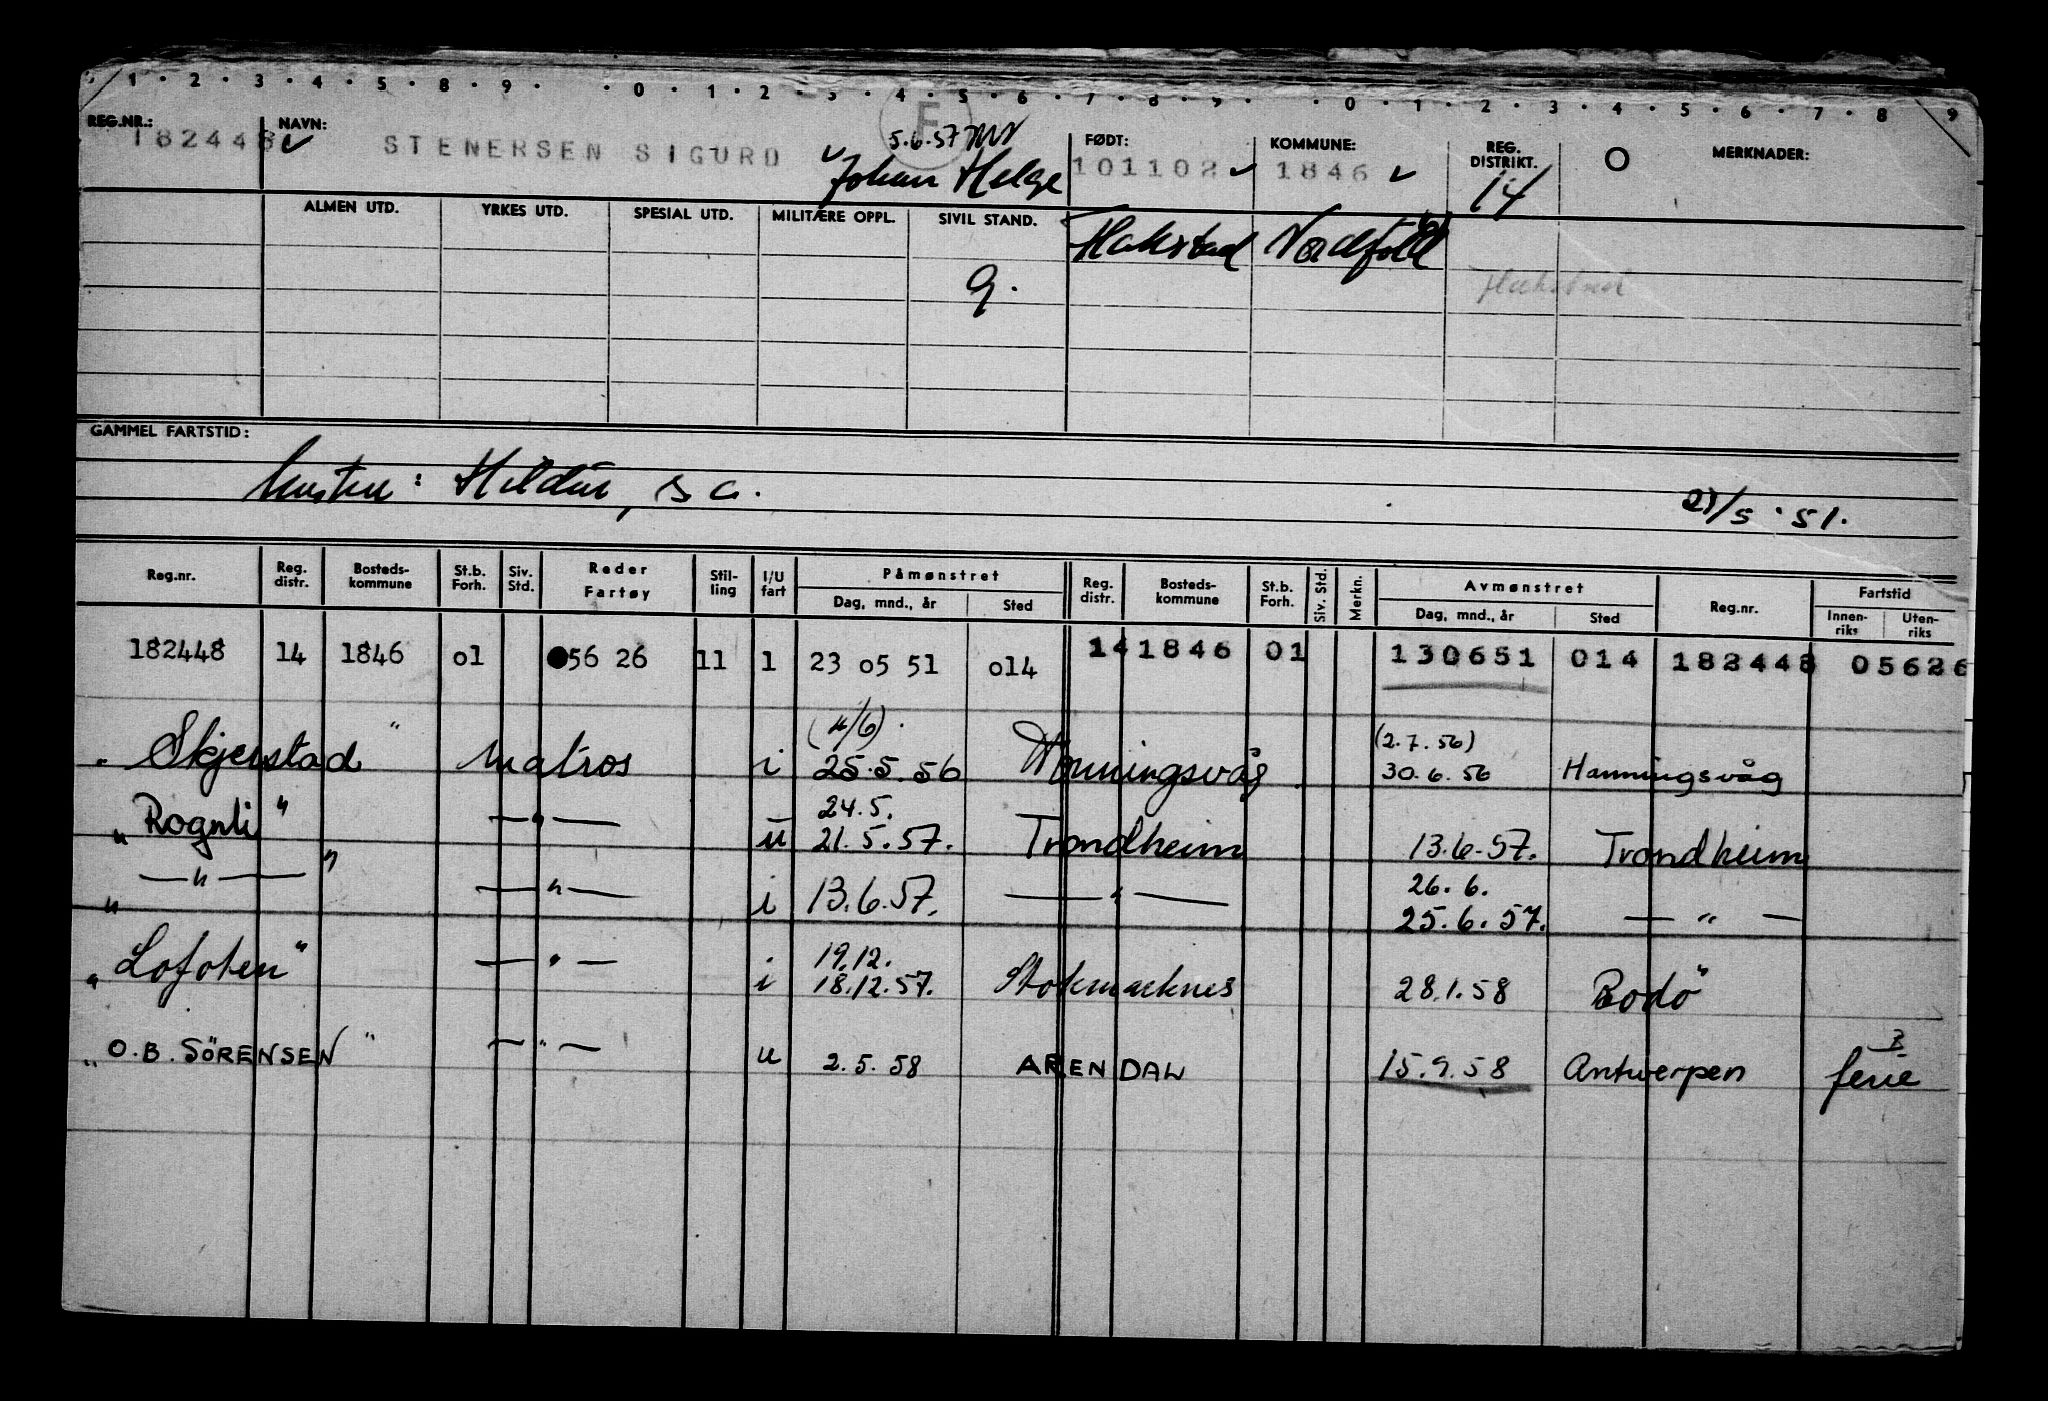 1 · 2 · 3 · 4 · 5 · 8 · 9 · · 0 · 1 · 2 · 3 · 4 · 5 · 6 · 7 · 8 · 9 · · 0 · 1 · 2 · 3 · 4 · 5 · 6 · 7 · 8 9
REG.NR.: NAVN: E 5.6.57 FØDT: KOMMUNE: REG. DISTRIKT. MERKNADER:
182448 STENERSEN SIGURD Johan Helge 101102 1846 14
ALMEN UTD. YRKES UTD. SPESIAL UTD. MILITÆRE OPPL. SIVIL STAND. Hakstad Nordfold
g. Hakstad
GAMMEL FARTSTID:
: Hildur, s c. /5 · 51.
Reg.nr. Reg. distr. Bosteds-kommune St.b. Forh. Siv. Std. Reder Fartøy Stil-ling I/U fart Påmønstret Dag, mnd., år Sted Reg. distr. Bosteds-kommune St.b. Forh. Siv. Std. Merkn. Avmønstret Dag, mnd., år Sted Reg.nr. Fartstid Innen-riks Uten-riks
182448 14 1846 01 56 26 11 1 23 05 51 014 14 1846 01 130651 014 182448 05626
(4/6) (2.7.56)
" Skjerstad " Matros i 25.5.56 Honningsvåg 30.6.56 Hanningsvåg
24.5.
" Rognli " — " — u 21.5.57. Trondheim 13.6.57. Trondheim
26.6.
" — " — " — " — i 13.6.57. — " — 25.6.57. — " —
19.12.
" Lofoten " — " — i 18.12.57. Stokmarknes 28.1.58 Bodö
" O.B. SÖRENSEN " — " — u 2.5.58 ARENDAL 15.9.58 Antwerpen ferie